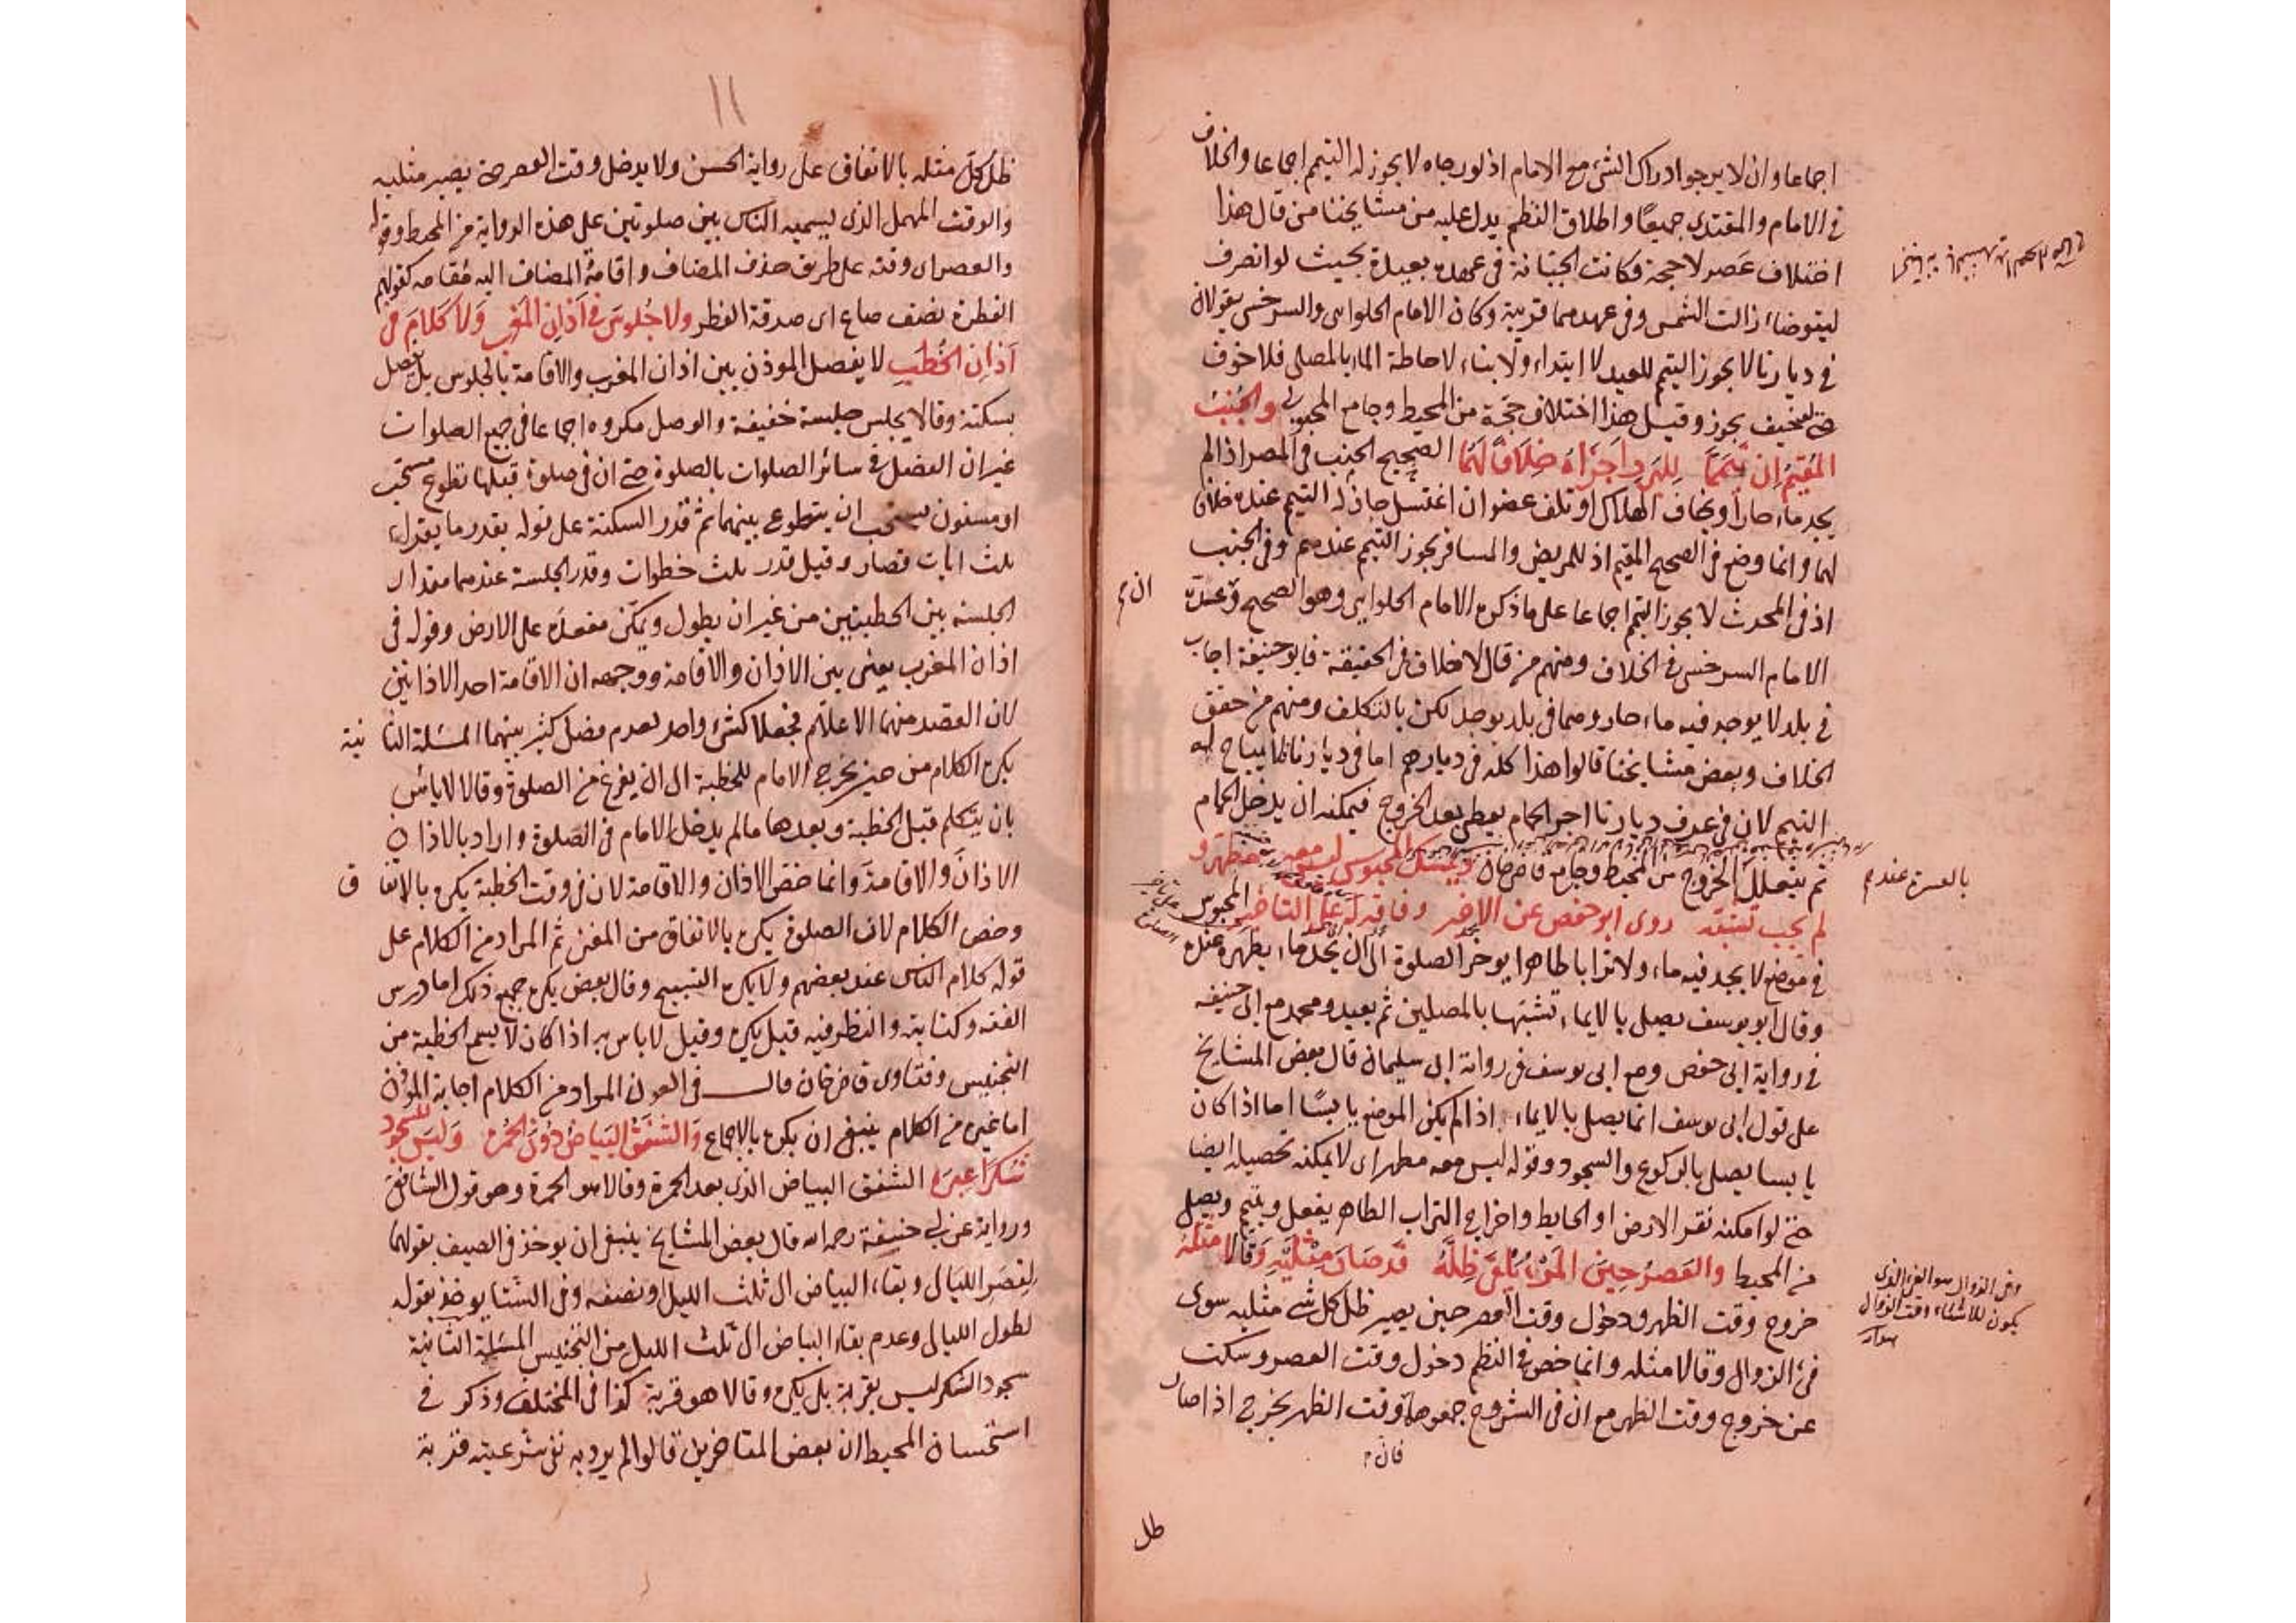 اجماعا وان لا يرجو ادراك الشئ مع الامام اذ لو رجاه لا يجوز له التيمم اجماعا والخلاف
في الامام والمقتدى جميعا واطلاق النظم يدل عليه من مشايخنا من قال هذا
اختلاف عصر لا حجة فكانت الجبانة في عهده بعيدة بحيث لو انصرف
ليتوضاء زالت الشمس وفي عهدهما قريبة وكان الامام الحلوانى والسرخسى يقولان
في ديارنا لا يجوز التيمم للعيد لا ابتداء ولا بناء لاحاطة الماء بالمصلى فلا خوف
حتى لو خيف يجوز وقيل هذا اختلاف حجة من المحيط وجامع المحبوبى والجنب
المقيم ان تيمما للبرد اجزاه خلافا لهما الصحيح الجنب في المصر اذا لم
يجد ماء حارا ويخاف الهلاك او تلف عضو ان اغتسل جاز له التيمم عنده خلافا
لهما وانما وضع في الصحيح المقيم اذ للمريض والمسافر يجوز التيمم عندهم وفي الجنب
اذ في المحدث لا يجوز التيمم اجماعا على ما ذكره الامام الحلوانى وهو الصحيح وعند
الامام السرخسى في الخلاف ومنهم من قال لا خلاف في الحقيقة فابو حنيفة اجاب
في بلد لا يوجد فيه ماء حار وهما في بلد يوجد لكن بالتكلف ومنهم من حقق
الخلاف وبعض مشايخنا قالوا هذا كله في ديارهم اما في ديارنا فلا يباح له
التيمم لان في عرف ديارنا اجر الحمام يعطى بعد الخروج فيمكنه ان يدخل الحمام
ثم يتعلل الخروج من المحيط وجامع قاضى خان ويمسك المحبوس ليس معه مطهر و
بالعسرة عندهم
لم يجب تشبه روى ابو حفص عن الاخير وفاقه له على التاخير المحبوس
في موضع لا يجد فيه ماء ولا ترابا طاهرا يوخر الصلوة الى ان يجد ماء يطهره عنده
وقال ابو يوسف يصلى بالايماء تشبها بالمصلين ثم يعيد ومحمد مع ابى حنيفه
في رواية ابى حفص ومع ابى يوسف في رواية ابى سليمان قال بعض المشايخ
على قول ابى يوسف انما يصلى بالايماء اذا لم يكن الموضع يابسا اما اذا كان
يابسا يصلى بالركوع والسجود وقوله ليس معه مطهر اى لا يمكنه تحصيله ايضا
حتى لو امكنه نقر الارض او الحايط واخراج التراب الطاهر يفعل ويتيمم ويصلى
من المحيط والعصر حين المرء يلقى ظله قد صار مثليه وقالا مثله
خروج وقت الظهر ودخول وقت العصر حين يصير ظل كل شئ مثليه سوى
فئ الزوال وقالا مثله وانما خص في النظم دخول وقت العصر وسكت
عن خروج وقت الظهر مع ان في الشروح جمعوهما وقت الظهر يخرج اذا صار
فان م
ان م
وفئ الزوال هو الفئ الذى
يكون للاشياء وقت الزوال
ظل
١١
ظل كل مثله بالاتفاق على رواية الحسن ولا يدخل وقت العصر حتى يصير مثليه
والوقت المهمل الذى يسميه الناس بين صلوتين على هذه الرواية من المحيط وقوله
والعصر اى وقته على طريق حذف المضاف واقامة المضاف اليه مقامه كقولهم
الفطرة نصف صاع اى صدقة الفطر ولا جلوس في اذان المغرب ولا كلام في
اذان الخطب لا يفصل الموذن بين اذان المغرب والاقامة بالجلوس بل يفصل
بسكتة وقالا يجلس جلسة خفيفة والوصل مكروه اجماعا في جميع الصلوات
غير ان الفصل في سائر الصلوات بالصلوة حتى ان في صلوة قبلها تطوع مستحب
او مسنون يستحب ان يتطوع بينهما ثم قدر السكتة على قوله بقدر ما يقراء
ثلث ايات قصار وقيل قدر ثلث خطوات وقدر الجلسة عندهما مقدار
الجلسة بين الخطبتين من غير ان يطول ويمكن مقعده على الارض وقوله في
اذان المغرب يعنى بين الاذان والاقامة ووجهه ان الاقامة احد الاذانين
لان القصد منهما الاعلام فجعلا كشئ واحد لعدم فصل كثير بينهما المسئلة الثانية
يكره الكلام من حين يخرج الامام للخطبة الى ان يفرغ من الصلوة وقالا لا باس
بان يتكلم قبل الخطبة وبعدها ما لم يدخل الامام في الصلوة واراد بالاذان
الاذان والاقامة وانما خص الاذان والاقامة لان في وقت الخطبة يكره بالاتفاق
وخص الكلام لان الصلوة يكره بالاتفاق من المغنى ثم المراد من الكلام على
قوله كلام الناس عند بعضهم ولا يكره التسبيح وقال بعض يكره جميع ذلك اما درس
الفقه وكتابته والنظر فيه قيل يكره وقيل لا باس به اذا كان لا يسمع الخطبة من
التجنيس وفتاوى قاضى خان قال في العون المراد من الكلام اجابة الموذن
اما غيره من الكلام ينبغى ان يكره بالاجماع والشفق البياض دون الحمرة وليس للسجود
شكرا عبرة الشفق البياض الذى بعد الحمرة وقالا هو الحمرة وهو قول الشافعى
ورواية عن ابى حنيفة رحمه الله قال بعض المشايخ ينبغى ان يوخذ في الصيف بقولهما
لقصر الليالى وبقاء البياض الى ثلث الليل او نصفه وفي الشتا يوخذ بقوله
لطول الليالى وعدم بقاء البياض الى ثلث الليل من التجنيس المسئلة الثانية
سجود الشكر ليس بقربة بل يكره وقالا هو قربة كذا في المختلف وذكر في
استحسان المحيط ان بعض المتاخرين قالوا لم يرد به نفى شرعيته قربة